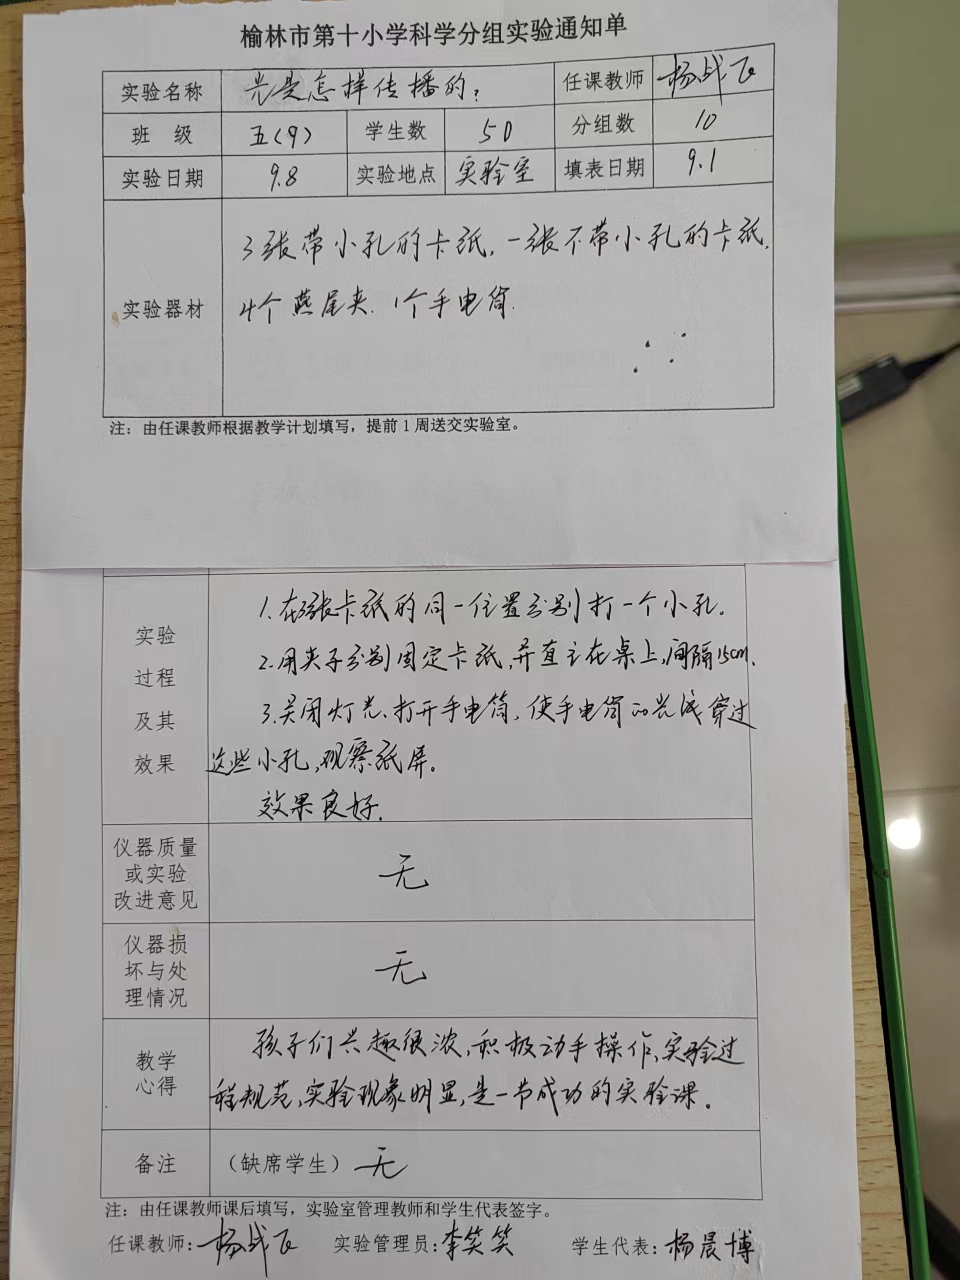 榆林市第十小学科学分组实验通知单
实验名称 光是怎样传播的? 任课教师 杨战飞
班 级 五(9) 学生数 50 分组数 10
实验日期 9.8 实验地点 实验室 填表日期 9.1
3张带小孔的卡纸,一张不带小孔的卡纸,
实验器材 4个燕尾夹.1个手电筒.
注:由任课教师根据教学计划填写,提前1周送交实验室。
实验
过程
及其
效果
1.在3张卡纸的同一位置分别打一个小孔.
2.用夹子分别固定卡纸,并直立在桌上,间隔15cm.
3.关闭灯光、打开手电筒,使手电筒的光线穿过
这些小孔,观察纸屏。
效果良好.
仪器质量
或实验
改进意见
无
仪器损
坏与处
理情况
无
教学
心得
孩子们兴趣很浓,积极动手操作,实验过
程规范,实验现象明显,是一节成功的实验课。
备注 (缺席学生) 无
注:由任课教师课后填写,实验室管理教师和学生代表签字。
任课教师:杨战飞 实验管理员:李笑笑 学生代表:杨晨博